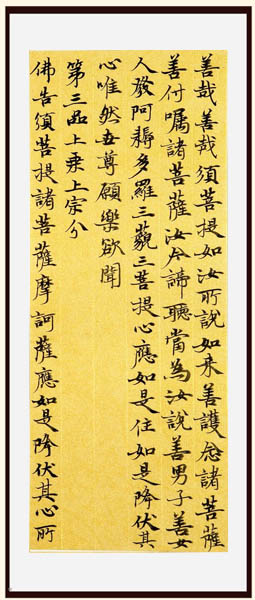 善哉善哉須菩提如汝所說如来善護念諸菩薩
善付囑諸菩薩汝今諦聽當為汝說善男子善女
人發阿耨多羅三藐三菩提心應如是住如是降伏其
心唯然世尊願樂欲聞
第三品上乘上宗分
佛告須菩提諸菩薩摩訶薩應如是降伏其心所